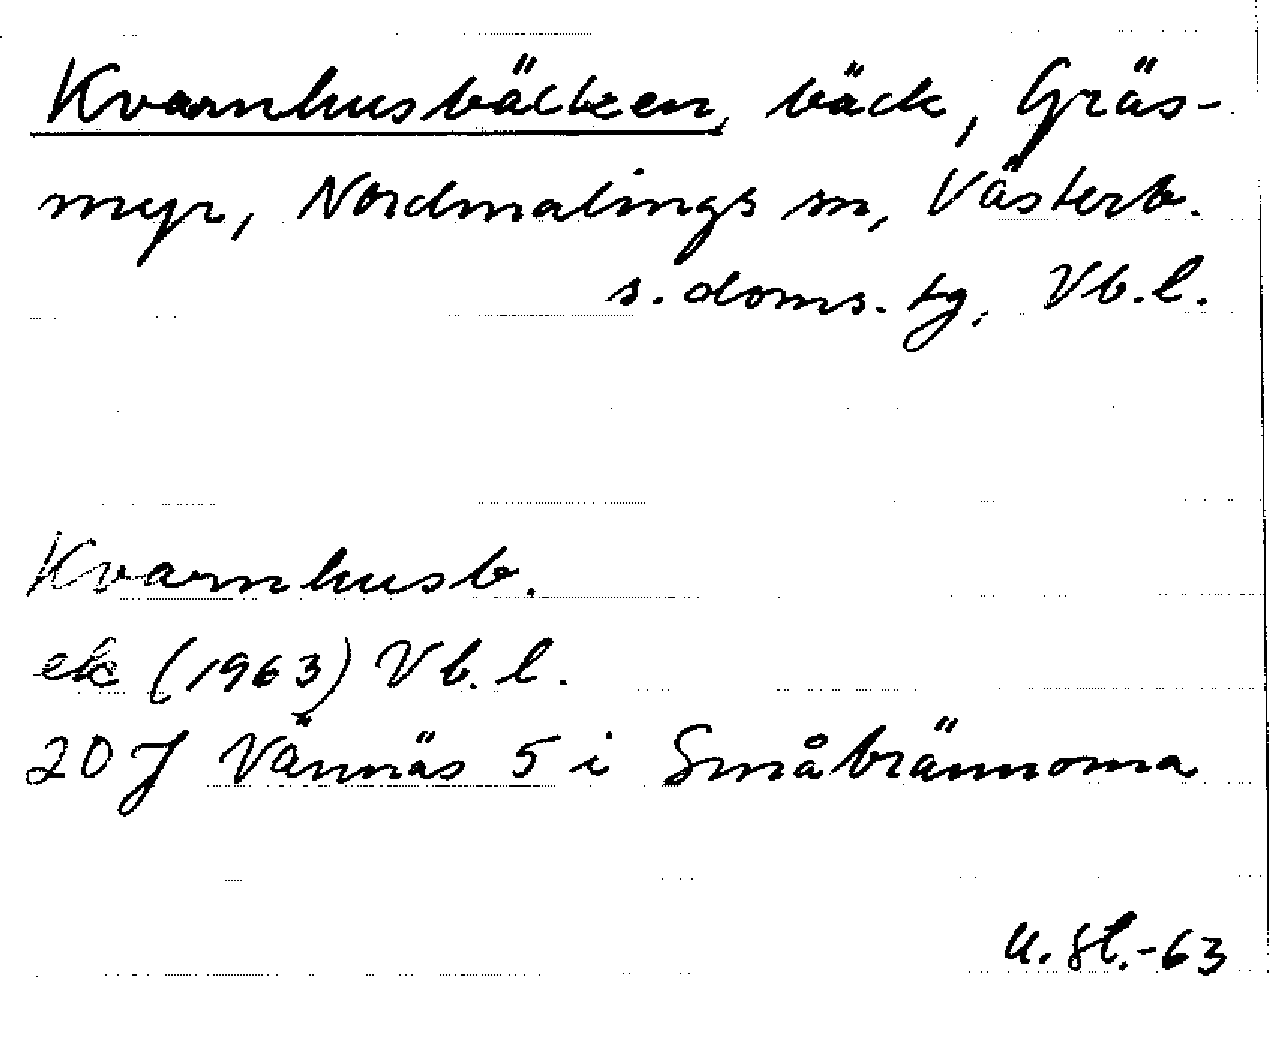 Kvarnhusbäcken, bäck, Gräs-
myr, Nordmalings sn, Västerb.
s. doms. tg, Vb.l.
Kvarnhusb.
ek (1963) Vb.l.
20 J Vännäs 5 i Småbrännorna
-63